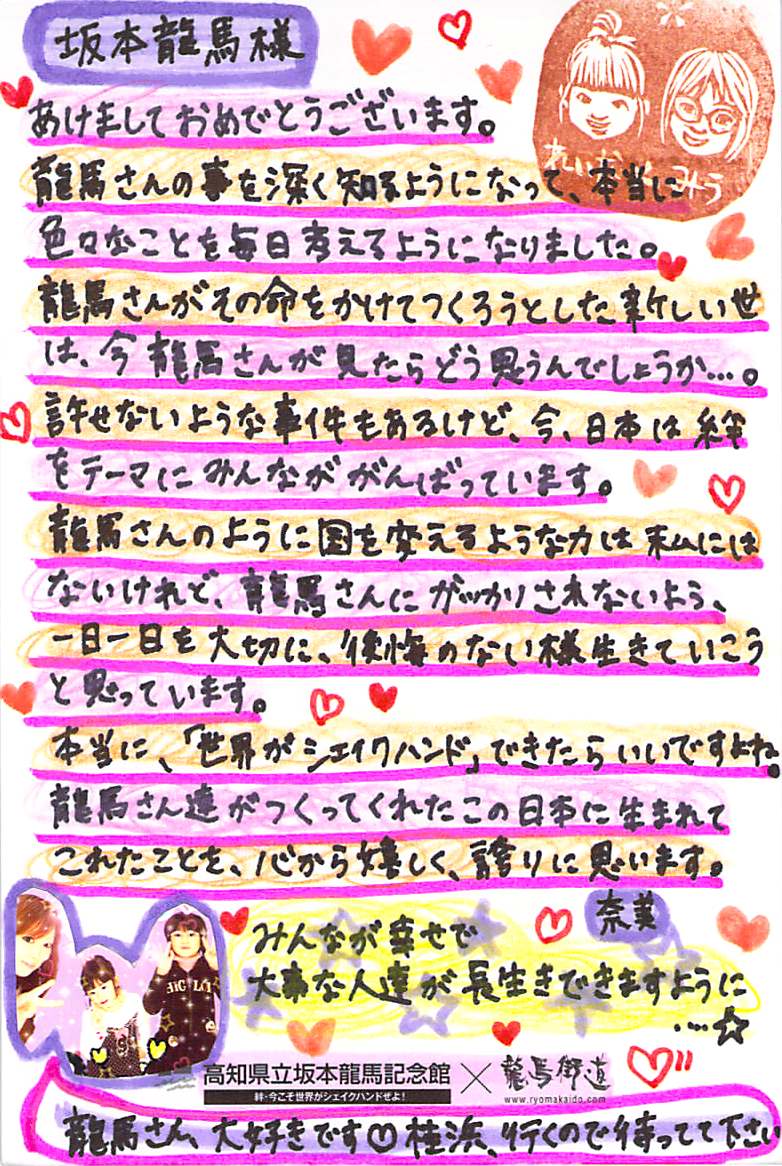 坂本龍馬様
あけましておめでとうございます。
龍馬さんの事を深く知るようになって、本当に
色々なことを毎日考えるようになりました。
龍馬さんがその命をかけてつくろうとした新しい世
は、今龍馬さんが見たらどう思うんでしょうか…。
許せないような事件もあるけど、今、日本は絆
をテーマにみんながががんばっています。
龍馬さんのように国を変えるような力は私には
ないけれど、龍馬さんにガッカリされないよう、
一日一日を大切に、後悔のない様生きていこう
と思っています。
本当に、「世界がシェイクハンド」できたらいいですよね。
龍馬さん達がつくってくれたこの日本に生まれて
これたことを、心から嬉しく、誇りに思います。
奈美
みんなが幸せで
大事な人達が長生きできますように
…☆
高知県立坂本龍馬記念館×龍馬街道
絆・今こそ世界がシェイクハンドぜよ!
www.ryomakaido.com
龍馬さん、大好きです♡桂浜、行くので待ってて下さい